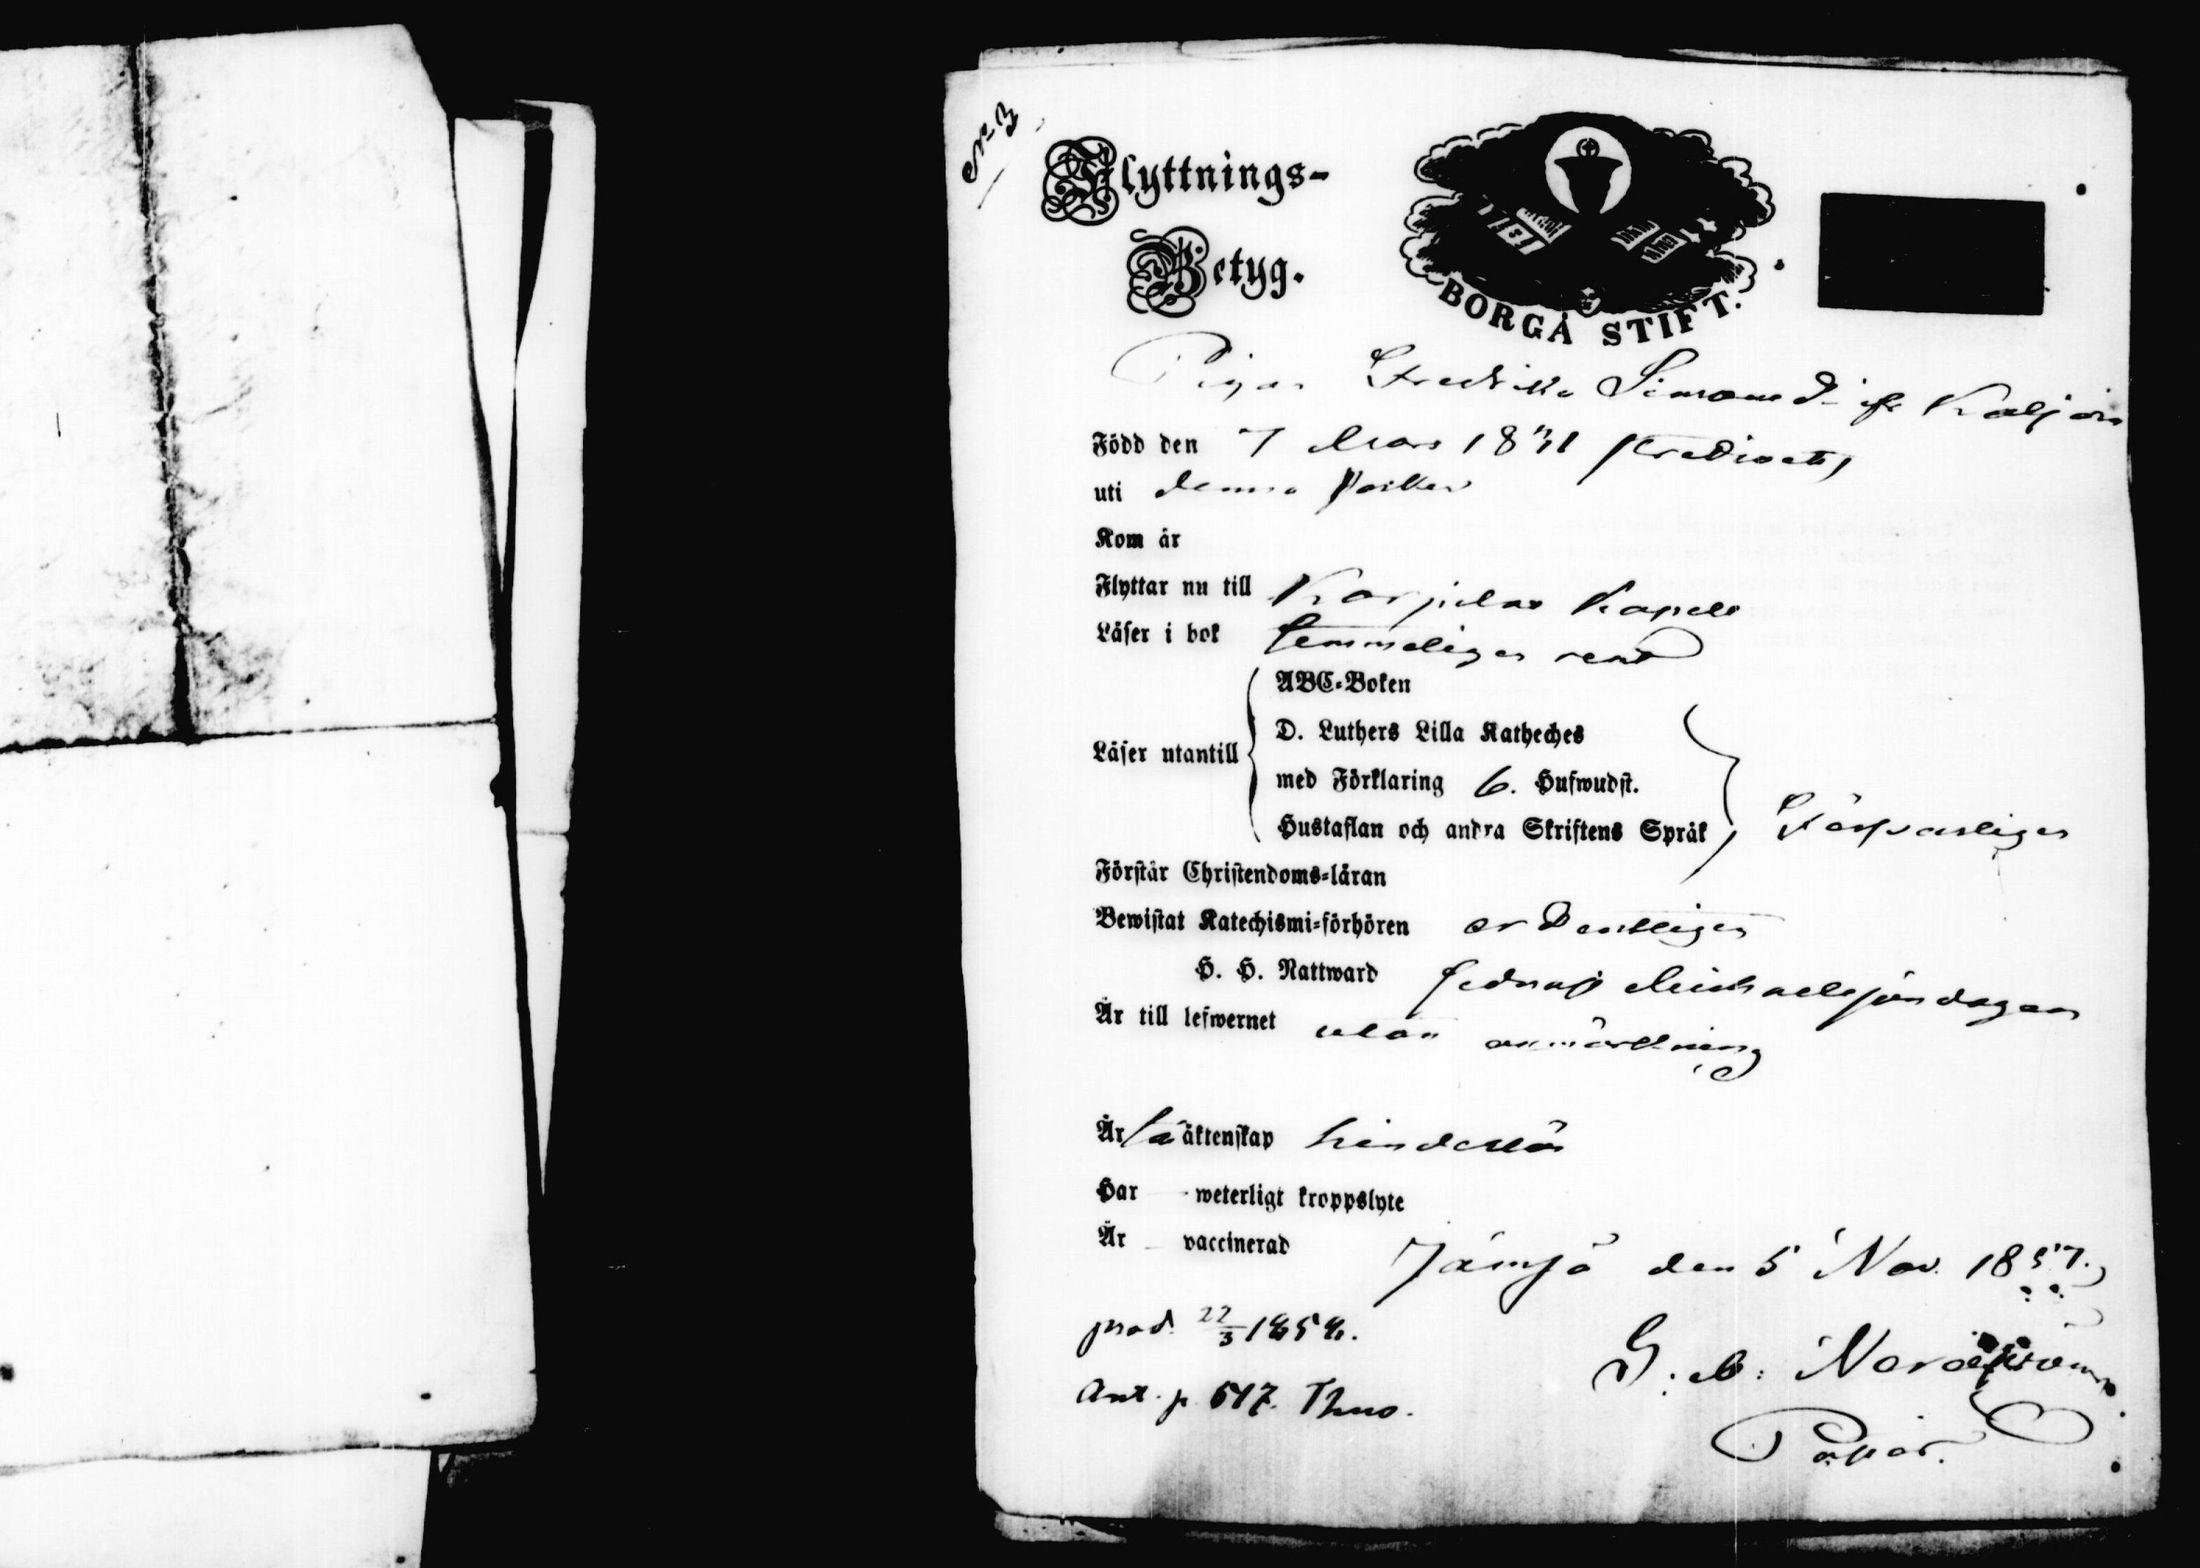 N:o 3
Flyttnings-
Betyg.
BORGÅ STIFT.
Pigan Fredrika Simonsd:r fr Kaljoin
Född den 7 Mars 1831
uti denna socken
Kom år
Flyttar nu till Korpilax Kapell
Läser i bok temmeligen rent
Läser utantill
ABC-Boken
D. Luthers Lilla Katheches
med Förklaring 6. Hufwudst.
Hustaflan och andra Skriftens Språk
Försvarligen
Förstår Christendoms-läran
Bewistat Katechismi-förhören ordentligen
H. H. Nattward sednast Michaelssöndagen
Är till lefwernet utan anmärkning
Är til äktenskap hinderslös
Har weterligt kroppslyte
Är vaccinerad
Jämsä den 5 Nov. 1857.
prod. 22/3 1858.
Ant. p. 517. Thno.
G: A: Nordström
Pastor.